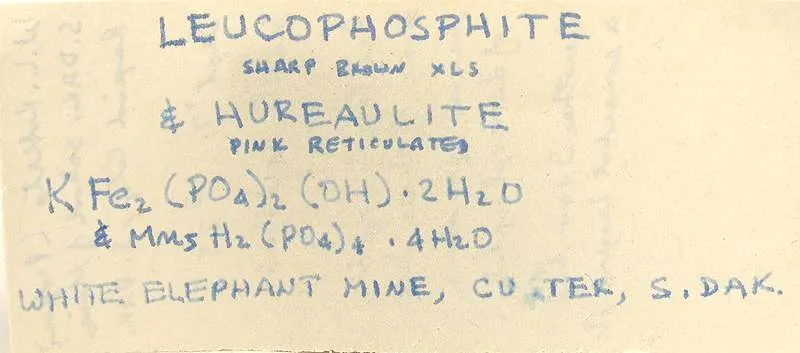 LEUCOPHOSPHITE
SHARP BROWN XLS
& HUREAULITE
PINK RETICULATED
K Fe₂ (PO₄)₂ (OH) · 2H₂O
& Mn₅ H₂ (PO₄)₄ · 4H₂O
WHITE ELEPHANT MINE, CU TER, S. DAK.